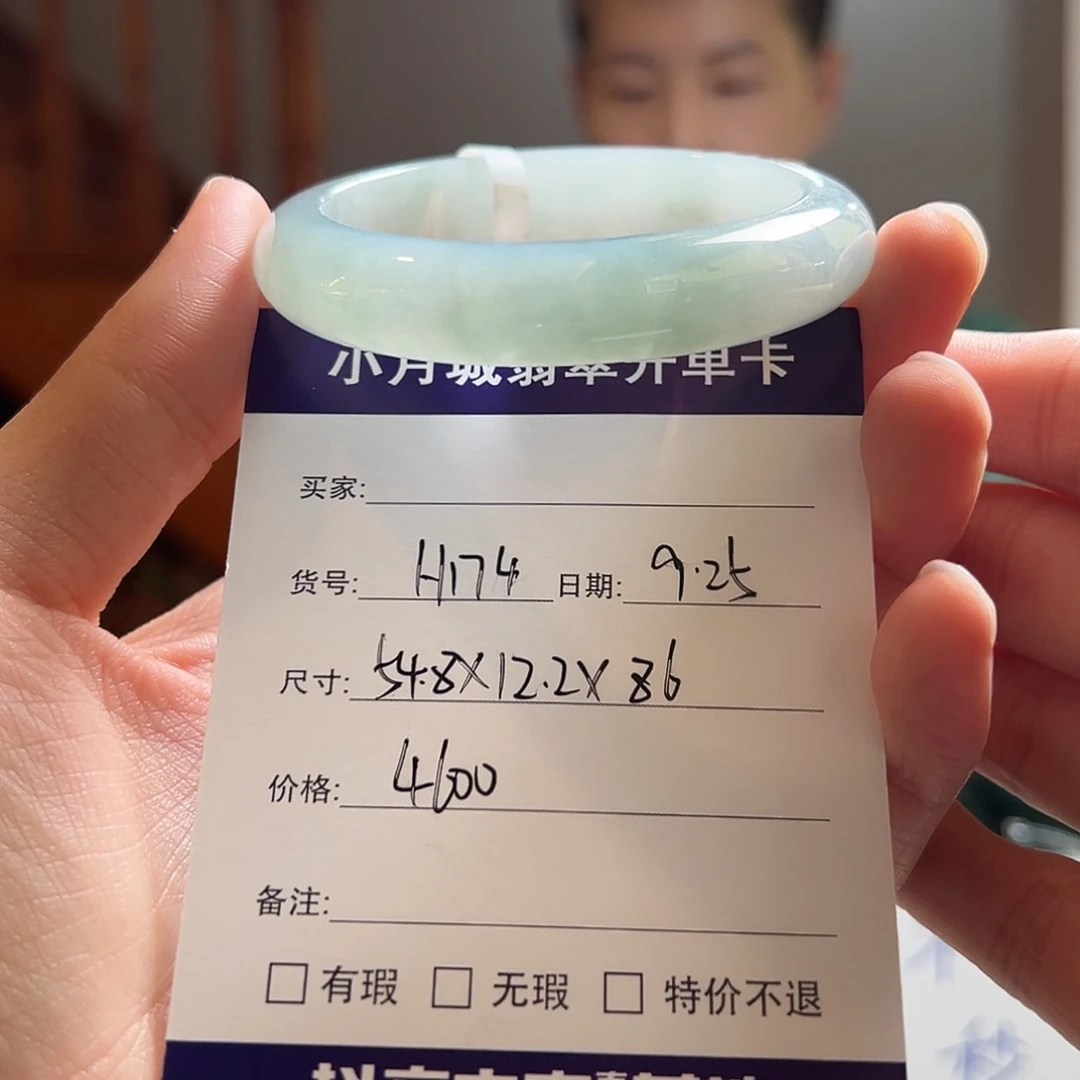 小月城翡翠开单卡
买家:
货号: H174 日期: 9.25
尺寸: 54.8X12.2X 86
价格: 4600
备注:
有瑕 无瑕 特价不退